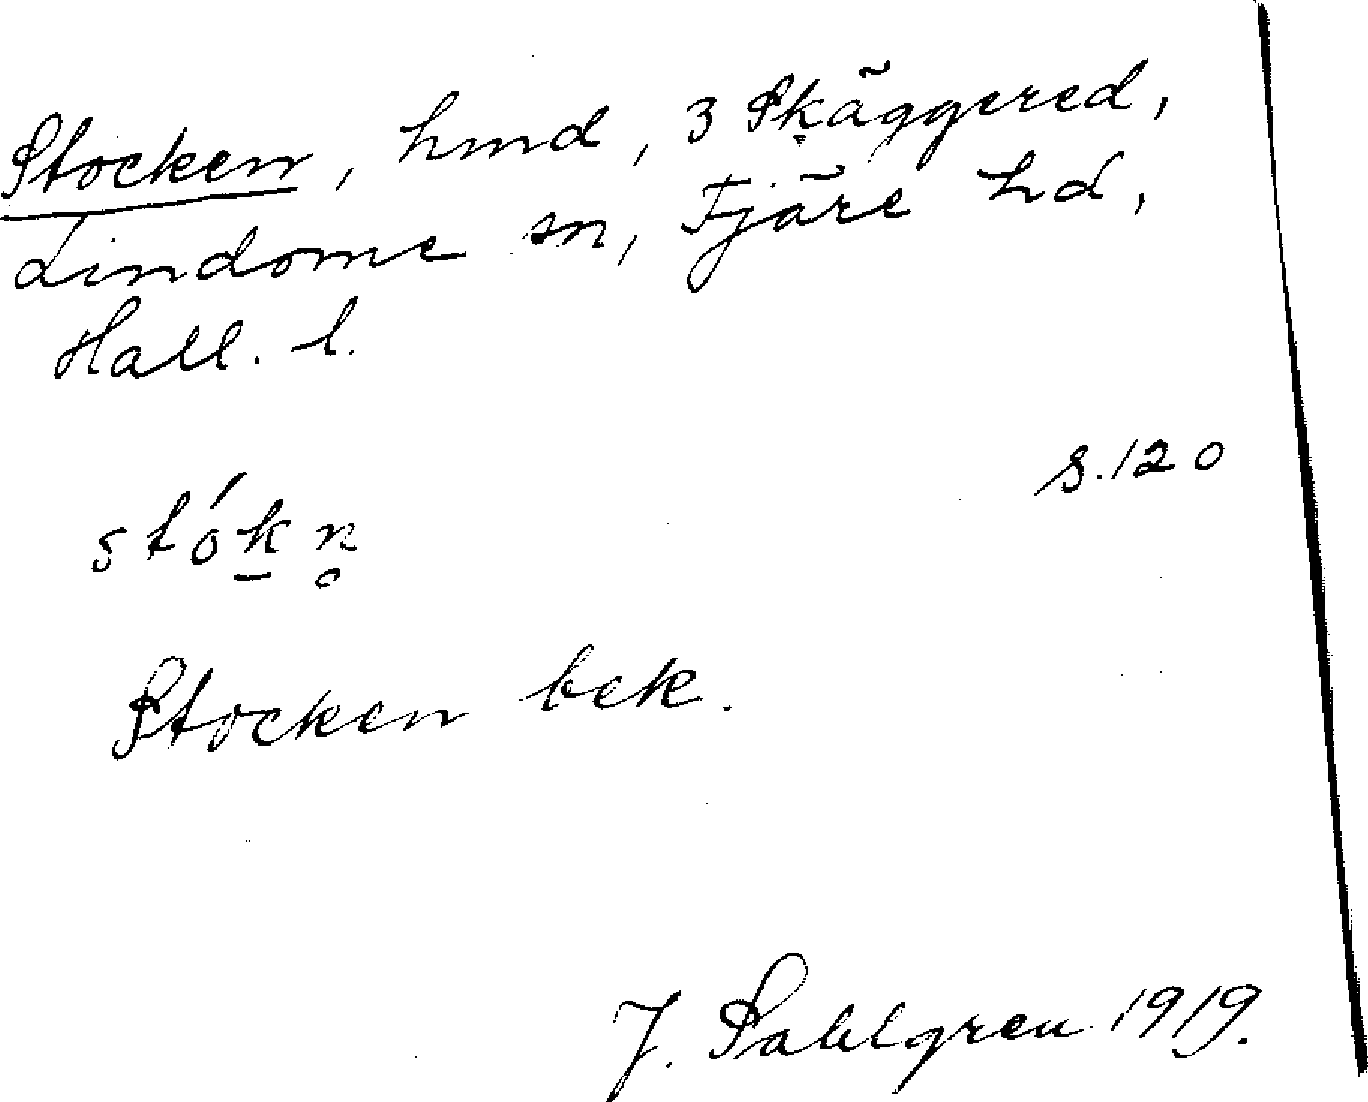 Stocken, hmd, 3 Skäggered,
Lindome sn, Fjäre hd,
Hall. l.
s. 120
stók̲n̥
Stocken bek.
J. Sahlgren 1919.